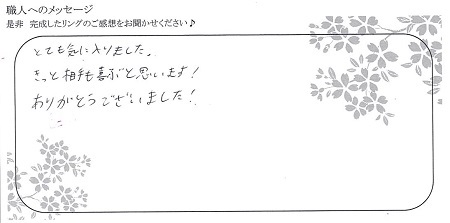 職人へのメッセージ
是非 完成したリングのご感想をお聞かせください♪
とても気に入りました。
きっと相手も喜ぶと思います!
ありがとうございました!